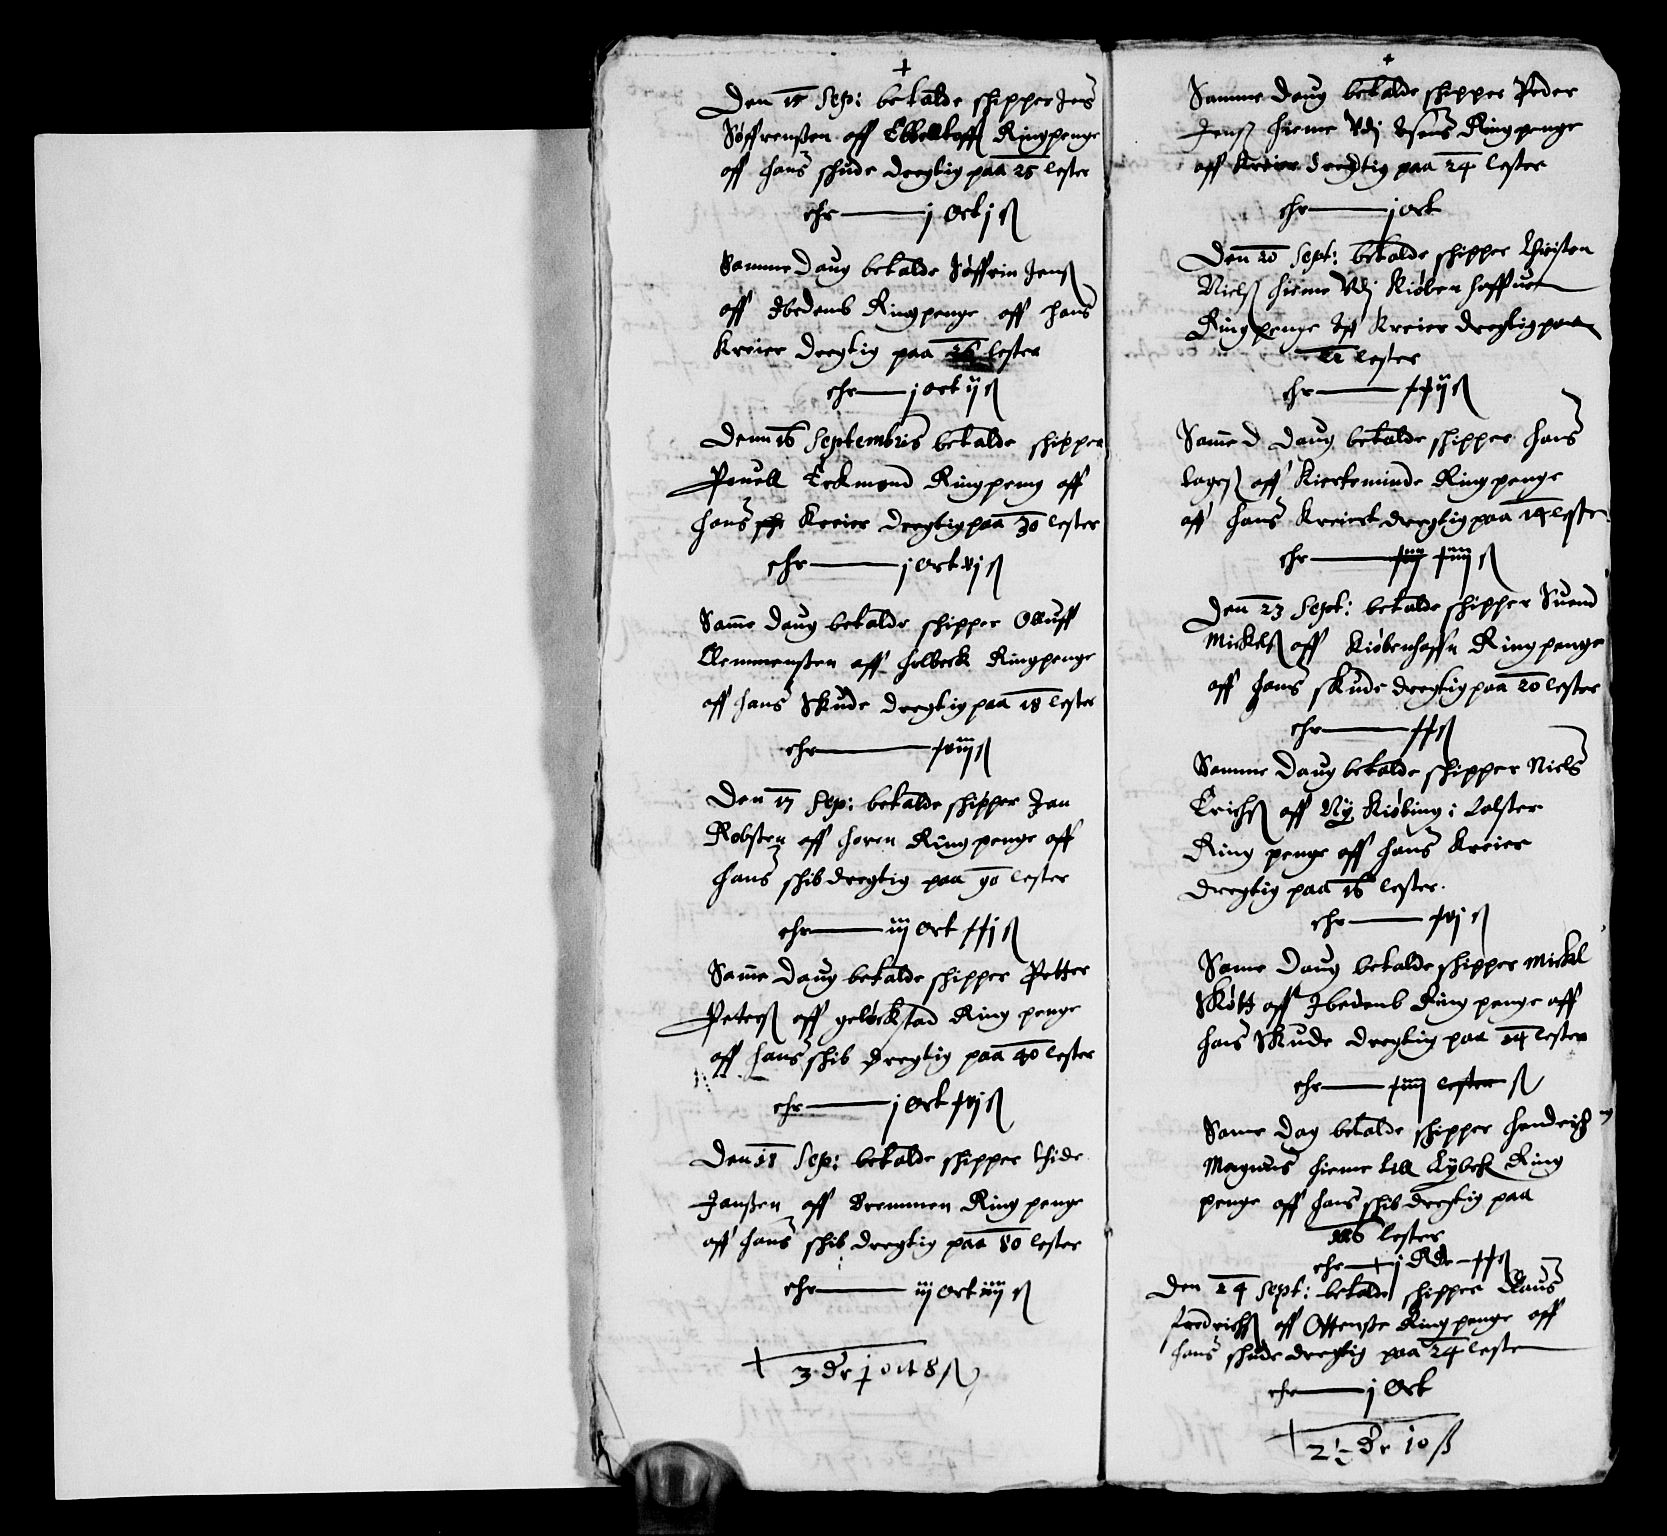 +
Den 15 Sep: betalde shipper Jens
Søffrenßen off Ebbelltofft Ringpenge
off hans shude dregtig paa 25 lester
ehr — j ort j ß
Samme daug betalde Søffrin Jenß
off Ibedenb Ringpenge off hans
Kreier dregtig paa 26 lester
ehr — j ort ij ß
Denn 16 Septembris betalde shipper
Pouell Eckmond Ringpeng off
hans Kreier dregtig paa 30 lester
ehr — j ort vj ß
Same daug betalde shipper Olluff
Clemmenßen aff holbeck Ringpenge
off hans Skude dregtig paa 18 lester
ehr — xviij ß
Den 17 Sep: betalde shipper Jan
Robsten off horen Ring penge off
hans shib dregtig paa 90 lester
ehr — iij ort xxj ß
Same daug betalde shipper Petter
Peterß off gelöckstad Ring penge
off hans shib dregtig paa 40 lester
ehr — j ort xvj ß
Den 18 Sep: betalde shipper thide
Janßen off Bremmen Ring penge
off hans shib dregtig paa 80 lester
ehr — iij ort iiij ß
3 dr j ort 8 ß
+
Samme daug betalde shipper Peder
Jenß hieme Vdj Ring penge
off Kreier dregtig paa 24 lester
ehr — j ort
Den 20 Sept: betalde shipper Christen
Nielß hieme Vdj Kiøben haffuen
Ring penge Kreier dregtig paa
12 lester
ehr — xij ß
Same daug betalde shipper hans
Lageß off Kierteminde Ring penge
off hans Kreiert dregtig paa 14 lester
ehr — xiiij ß
Den 23 Sept: betalde shipper Suend
Mickelß off Kiøbenhaffn Ring penge
off hans skude dregtig paa 20 lester
ehr — xx ß
Samme daug betalde shipper Niels
Erichß off Ny Kiøbing i Lolster
Ring penge off hans Kreier
dregtig paa 16 lester.
ehr — xvj ß
Same daug betalde shipper Mickl
Skøtt off Ibedenb Ring penge off
hans Skude dregtig paa 14 lester
ehr — xiiij lester ß
Same dag betalde shipper hendrich
Magnus hieme till Lybeck Ring
penge off hans shib dregtig paa
116 lester
ehr — j Rdr — xx ß
Den 24 Sept: betalde shipper Claus
fredrichß off Ottenße Ring penge off
hans shude dregtig paa 24 lester
ehr — j Ort
2½ dr 10 ß